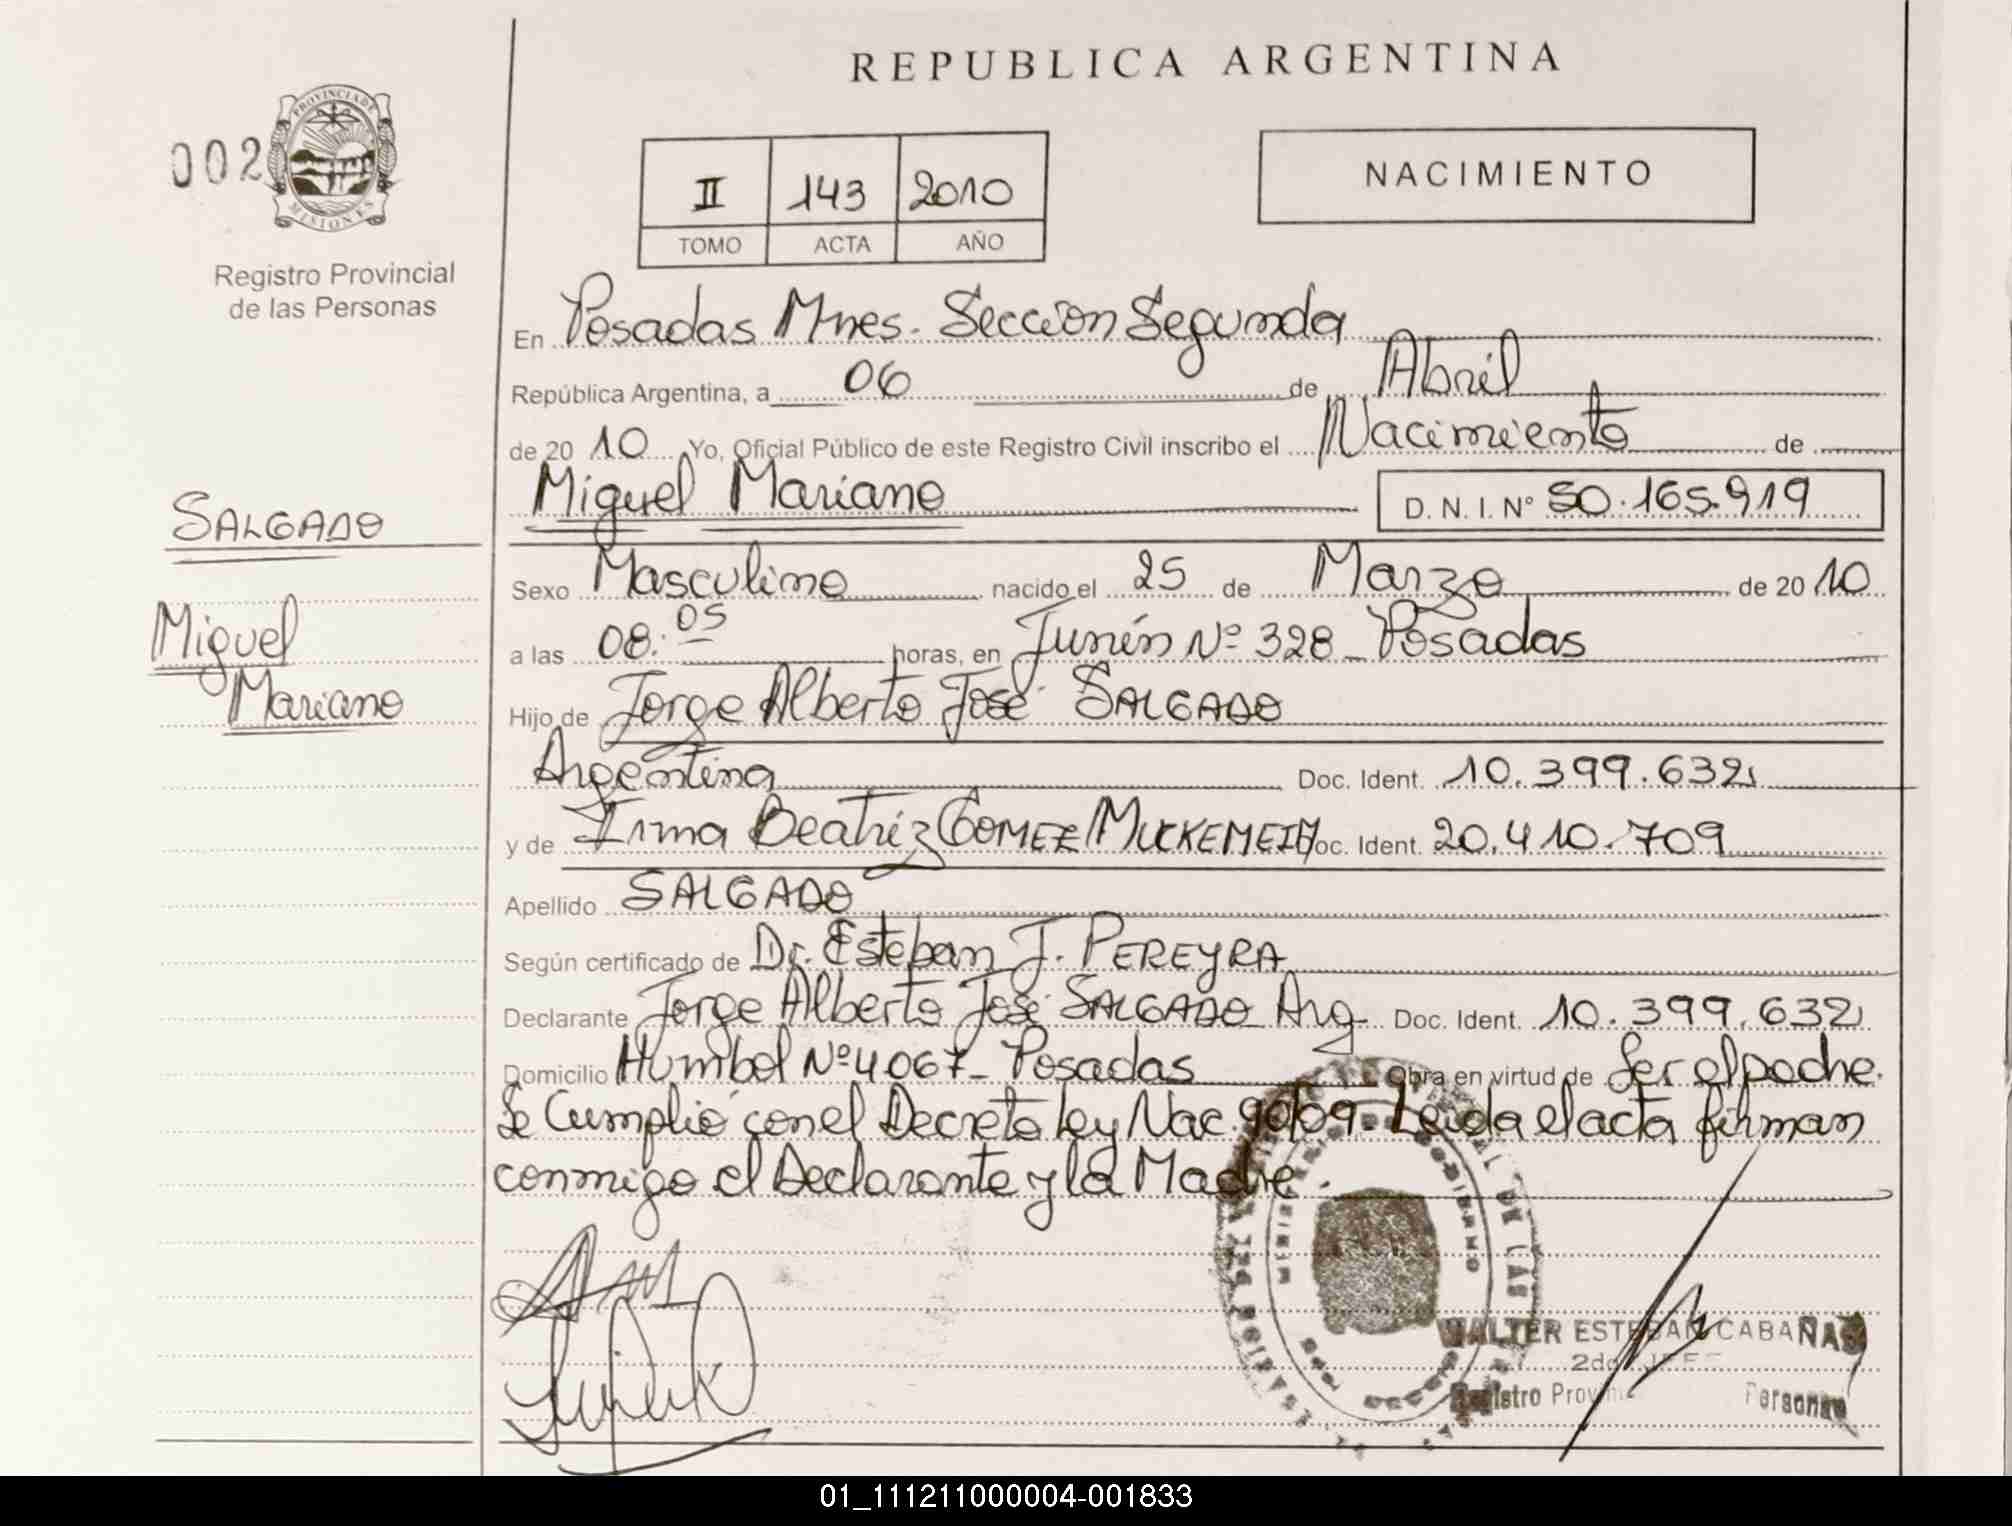 REPUBLICA ARGENTINA
002
PROVINCIA DE
MISIONES
Registro Provincial
de las Personas
II 143 2010
TOMO ACTA AÑO
NACIMIENTO
En Posadas Mnes. Sección Segunda
República Argentina, a 06 de Abril
de 20 10 Yo, Oficial Público de este Registro Civil inscribo el Nacimiento de
Miguel Mariano D. N. I. Nº 50.165.919
SALGADO
Miguel
Mariano
Sexo Masculino nacido el 25 de Marzo de 20 10
a las 08:05 horas, en Junín Nº 328 Posadas
Hijo de Jorge Alberto José SALGADO
Argentina Doc. Ident. 10.399.632
y de Irma Beatriz GOMEZ/ Doc. Ident. 20.410.709
Apellido SALGADO
Según certificado de Dr. Esteban J. PEREYRA
Declarante Jorge Alberto José SALGADO Arg Doc. Ident. 10.399.632
Domicilio Humbol Nº 4067- Posadas Obra en virtud de Ser el padre.
Se Cumplió con el Decreto Ley Nac. 90/09. Leida el acta firman
conmigo el Declarante y la Madre.
WALTER ESTEBAN CABAÑAS
2do JEFE
Registro Personas
01_111211000004-001833